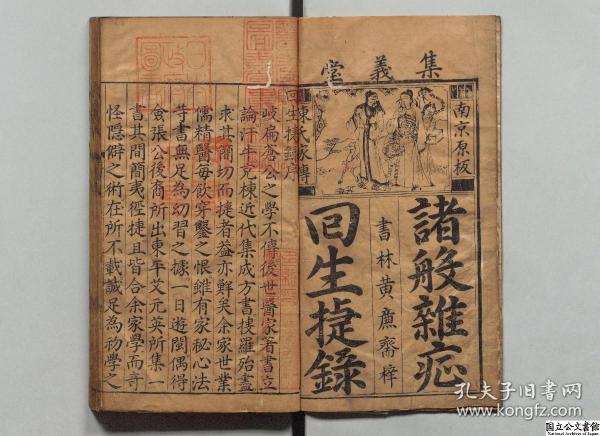 集義堂
南京原板
諸般雜症
書林黃㢘齋梓
回生捷錄
陳氏家傳
回生捷錄序
岐扁蒼公之學不傳後世醫家著書立
論汗牛充棟近代集成方書搜羅殆盡
求其簡切而捷者益亦鮮矣余家世業
儒精醫每飲穿鑿之恨雖有家秘心法
等書無足為幼習之據一日遊閩偶得
僉張公後裔所出東平艾元英所集一
書其間簡夷徑捷且皆合余家學而奇
怪隱僻之術在所不載誠足為初學之
孔夫子旧书网
www.kongfz.com
国立公文書館
National Archives of Japan